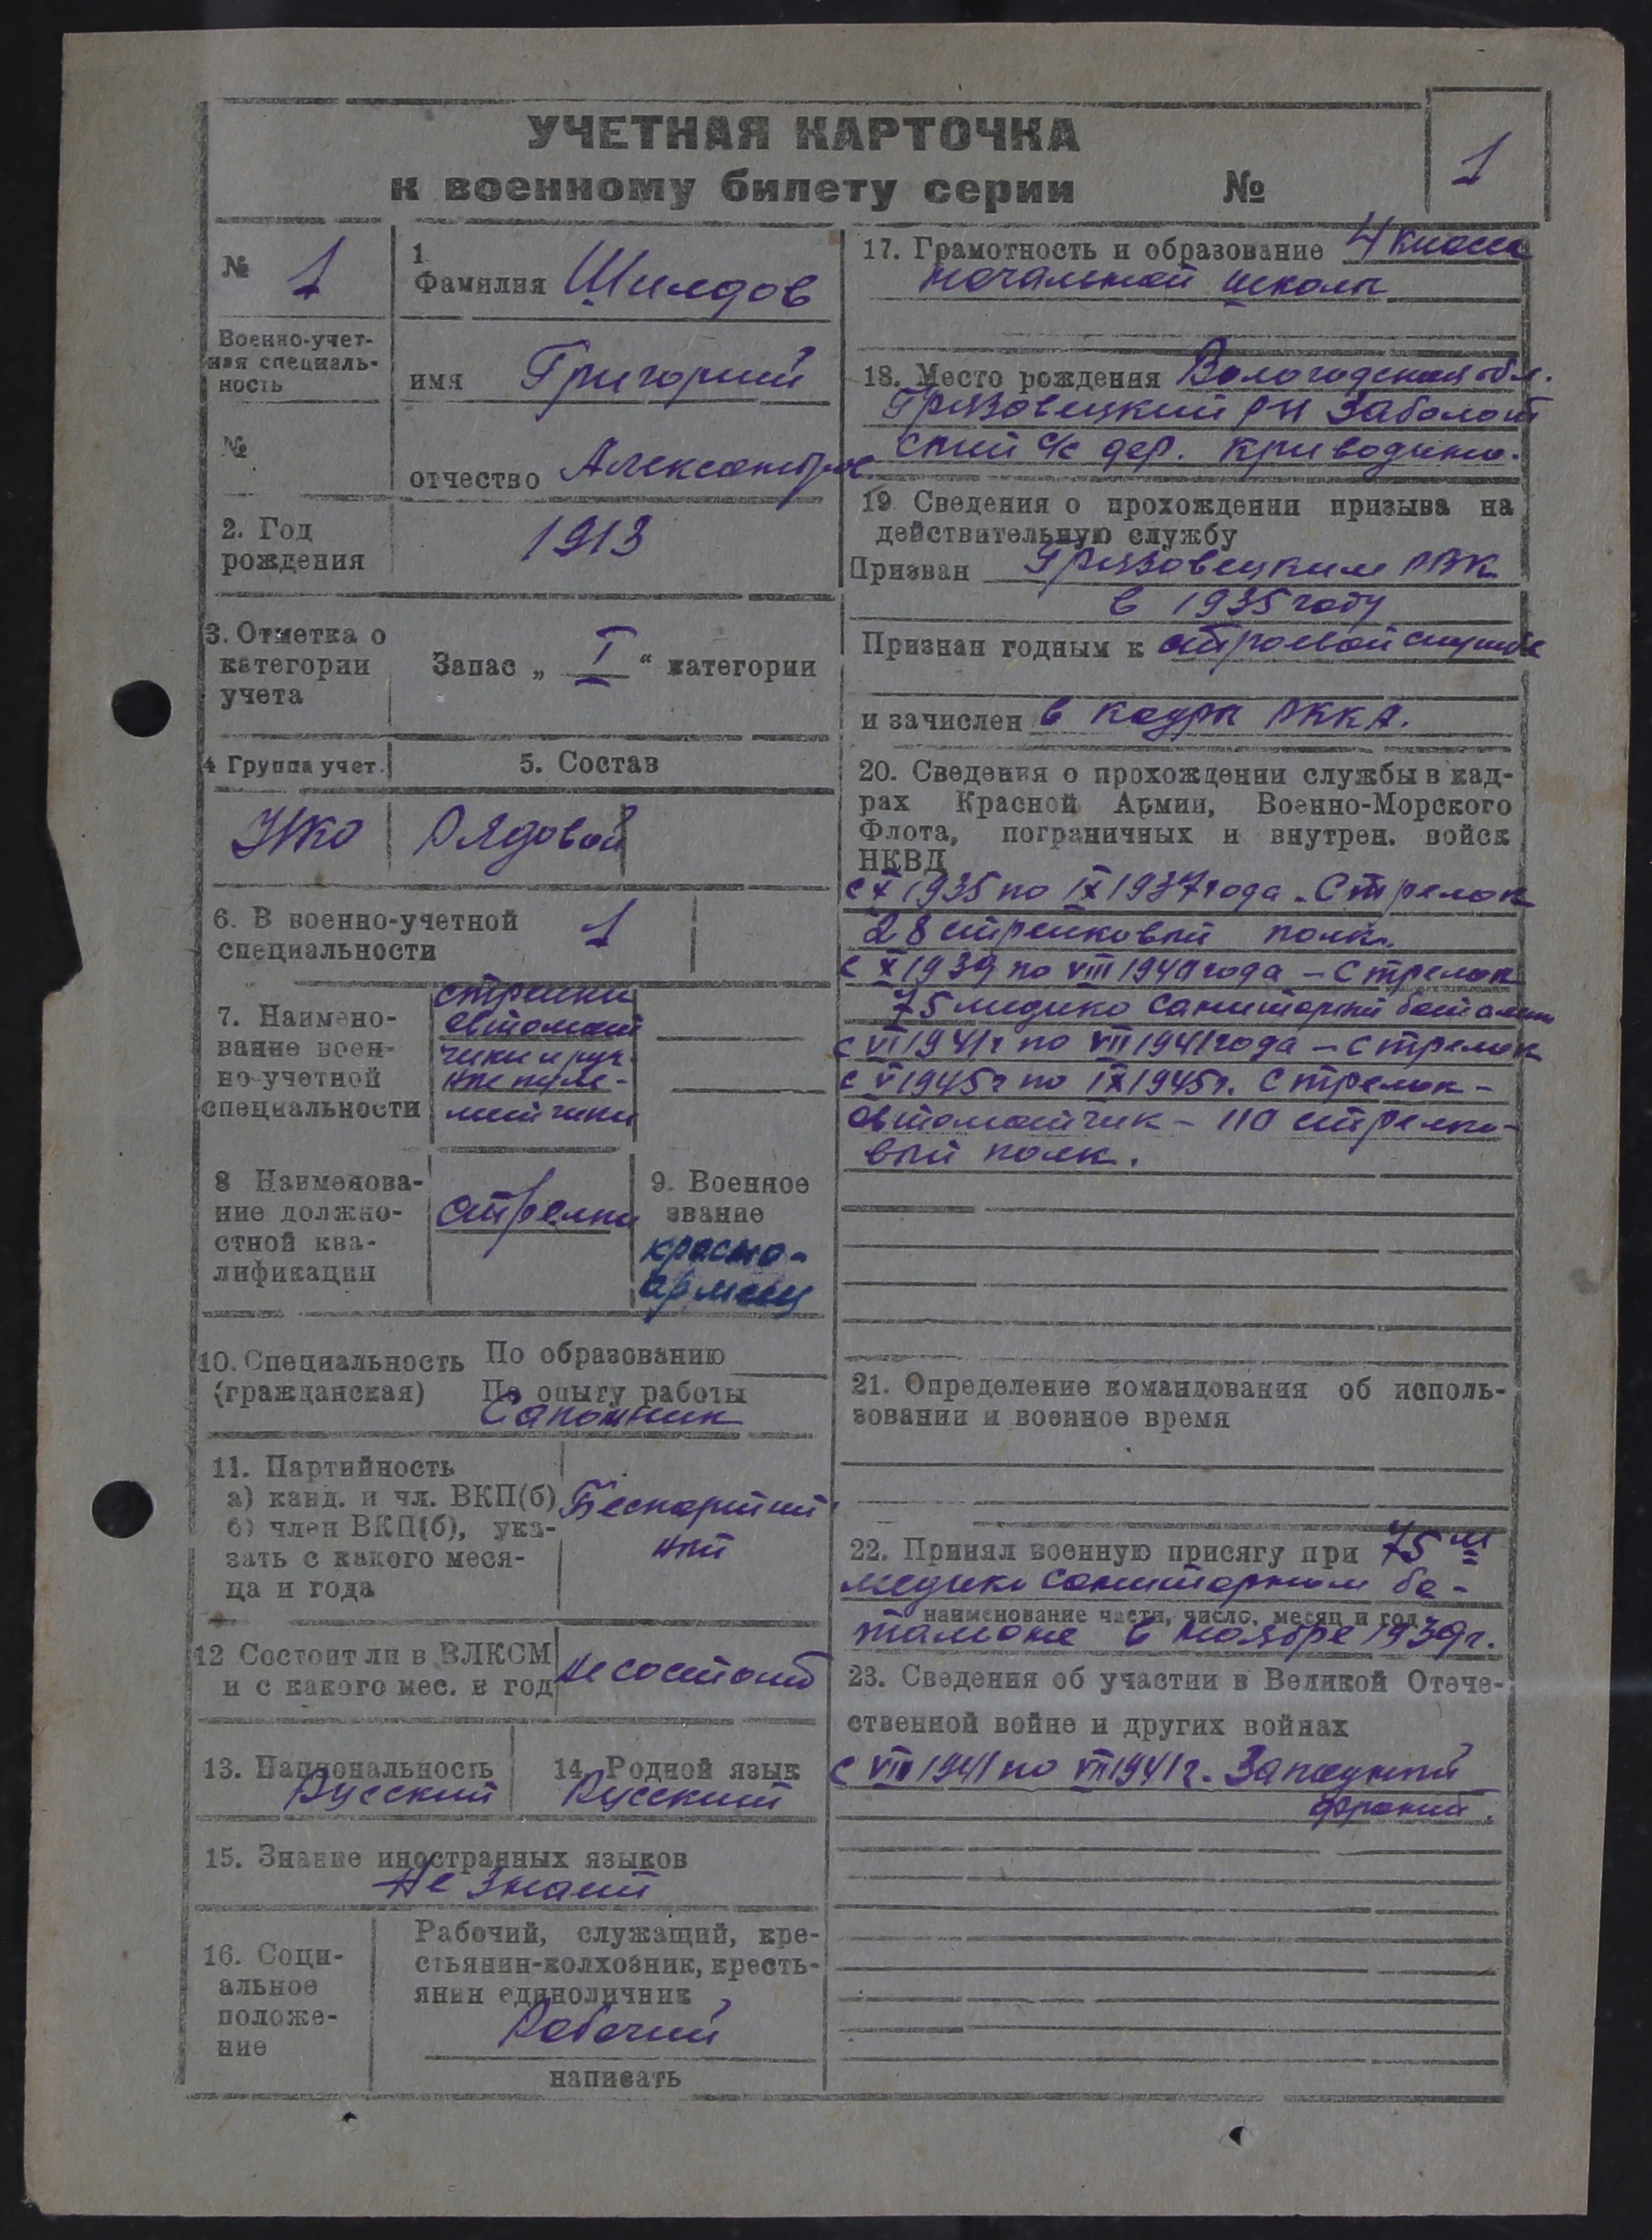 УЧЕТНАЯ КАРТОЧКА
к военному билету серии №
1
№ 1
Военно-учет-
ная специаль-
ность
№
1
Фамилия Шилдов
имя Григорий
отчество Александров
2. Год
рождения
1913
3. Отметка о
категории
учета
Запас „ I “ категории
4 Группа учет.
5. Состав
УКО
Рядовой
6. В военно-учетной
специальности
1
7. Наимено-
вание воен-
но-учетной
специальности
стрелки
автомат
чики и руч.
ные пуле-
метчики
8 Наименова-
ние должно-
стной ква-
лификации
стрелки
9. Военное
звание
красно-
армеец
10. Специальность
(гражданская)
По образованию
По опыту работы
Сапожник
11. Партийность
а) канд. и чл. ВКП(б)
б) член ВКП(б), ука-
зать с какого меся-
ца и года
Беспартий
ный
12 Состоит ли в ВЛКСМ
и с какого мес. и год
не состоит
13. Национальность
Русский
14. Родной язык
Русский
15. Знание иностранных языков
Не знает
16. Соци-
альное
положе-
ние
Рабочий, служащий, кре-
стьянин-колхозник, кресть-
янин единоличник
Рабочий
написать
17. Грамотность и образование 4 класса
начальной школы
18. Место рождения Вологодская обл.
Грязовецкий р-н Заболот
ский с/с дер. Криводино.
19 Сведения о прохождении призыва на
действительную службу
Призван Грязовецким РВК
в 1935 году
Признан годным к строевой службе
и зачислен в кадры РККА.
20. Сведения о прохождении службы в кад-
рах Красной Армии, Военно-Морского
Флота, пограничных и внутрен. войск
НКВД
с X 1935 по IX 1937 года - Стрелок
28 стрелковый полк.
с X 1939 по VIII 1940 года - Стрелок
75 медико санитарный батальон
с VI 1941 г по VII 1941 года - стрелок
с V 1945 г по IX 1945 г. Стрелок -
автоматчик - 110 стрелко-
вый полк.
21. Определение командования об исполь-
зовании и военное время
22. Принял военную присягу при 75 м
медико санитарном ба-
наименование части, число, месяц и год
тальоне в ноябре 1939 г.
23. Сведения об участии в Великой Отече-
ственной войне и других войнах
с VII 1941 по VII 1941 г. Западный
фронт.